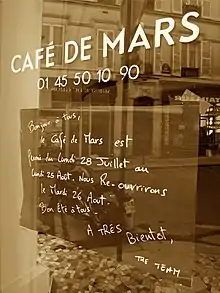 CAFÉ DE MARS
01 45 50 10 90
Bonjour à tous,
le Café de Mars est
fermé du Lundi 28 Juillet au
Lundi 25 Août. Nous Re-ouvrirons
le Mardi 26 Aout.
Bon Eté à tous.
A TRÈS Bientot,
THE TEAM